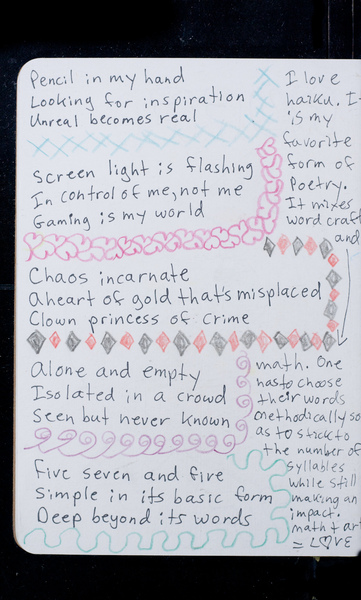 Pencil in my hand
Looking for inspiration
Unreal becomes real
Screen light is flashing
In control of me, not me
Gaming is my world
Chaos incarnate
a heart of gold that's misplaced
Clown princess of crime
Alone and empty
Isolated in a crowd
Seen but never known
Five seven and five
Simple in its basic form
Deep beyond its words
I love
haiku. I
is my
favorite
form of
Poetry.
It mixes
word craft
and
math. One
has to choose
their words
methodically so
as to stick to
the number of
syllables
while still
making an
impact.
math + ar
= L♡VE